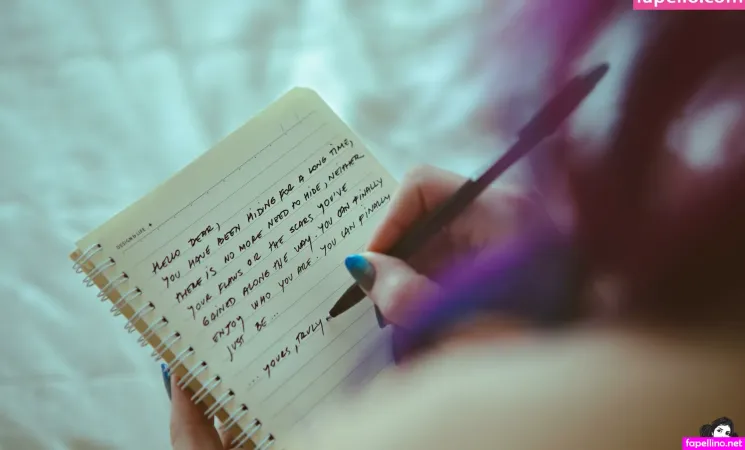 fapello.com
DESIGN LIFE
HELLO DEAR,
YOU HAVE BEEN HIDING FOR A LONG TIME,
THERE IS NO MORE NEED TO HIDE, NEITHER
YOUR FLAWS OR THE SCARS YOU'VE
GAINED ALONG THE WAY. YOU CAN FINALLY
ENJOY WHO YOU ARE.. YOU CAN FINALLY
JUST BE...
... YOURS, TRULY
fapellino.net